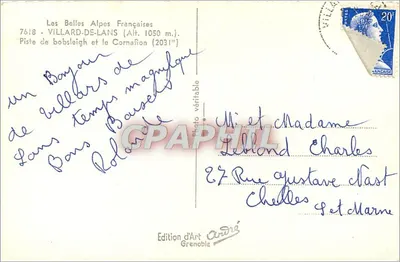 Les Belles Alpes Françaises
7618 - VILLARD-DE-LANS (Alt. 1050 m.)
Piste de bobsleigh et le Cornafion (2031m)
un Bonjour
de villars de
Lans temps magnifique
Bons Baisers
Rolande
Photo véritable
CPAPHIL
20F
Mr et Madame
Leblond Charles
27 Rue Gustave Nast
Chelles
S et Marne
Edition d'Art André
Grenoble